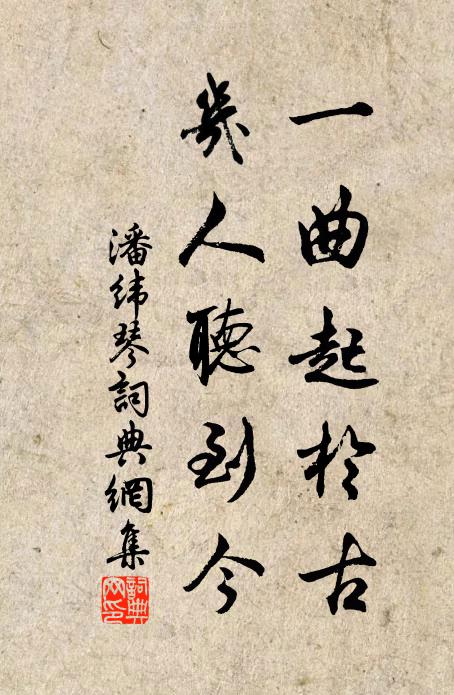 一曲起於古
幾人聽到今
潘緯琴詞典網集
詞典網印